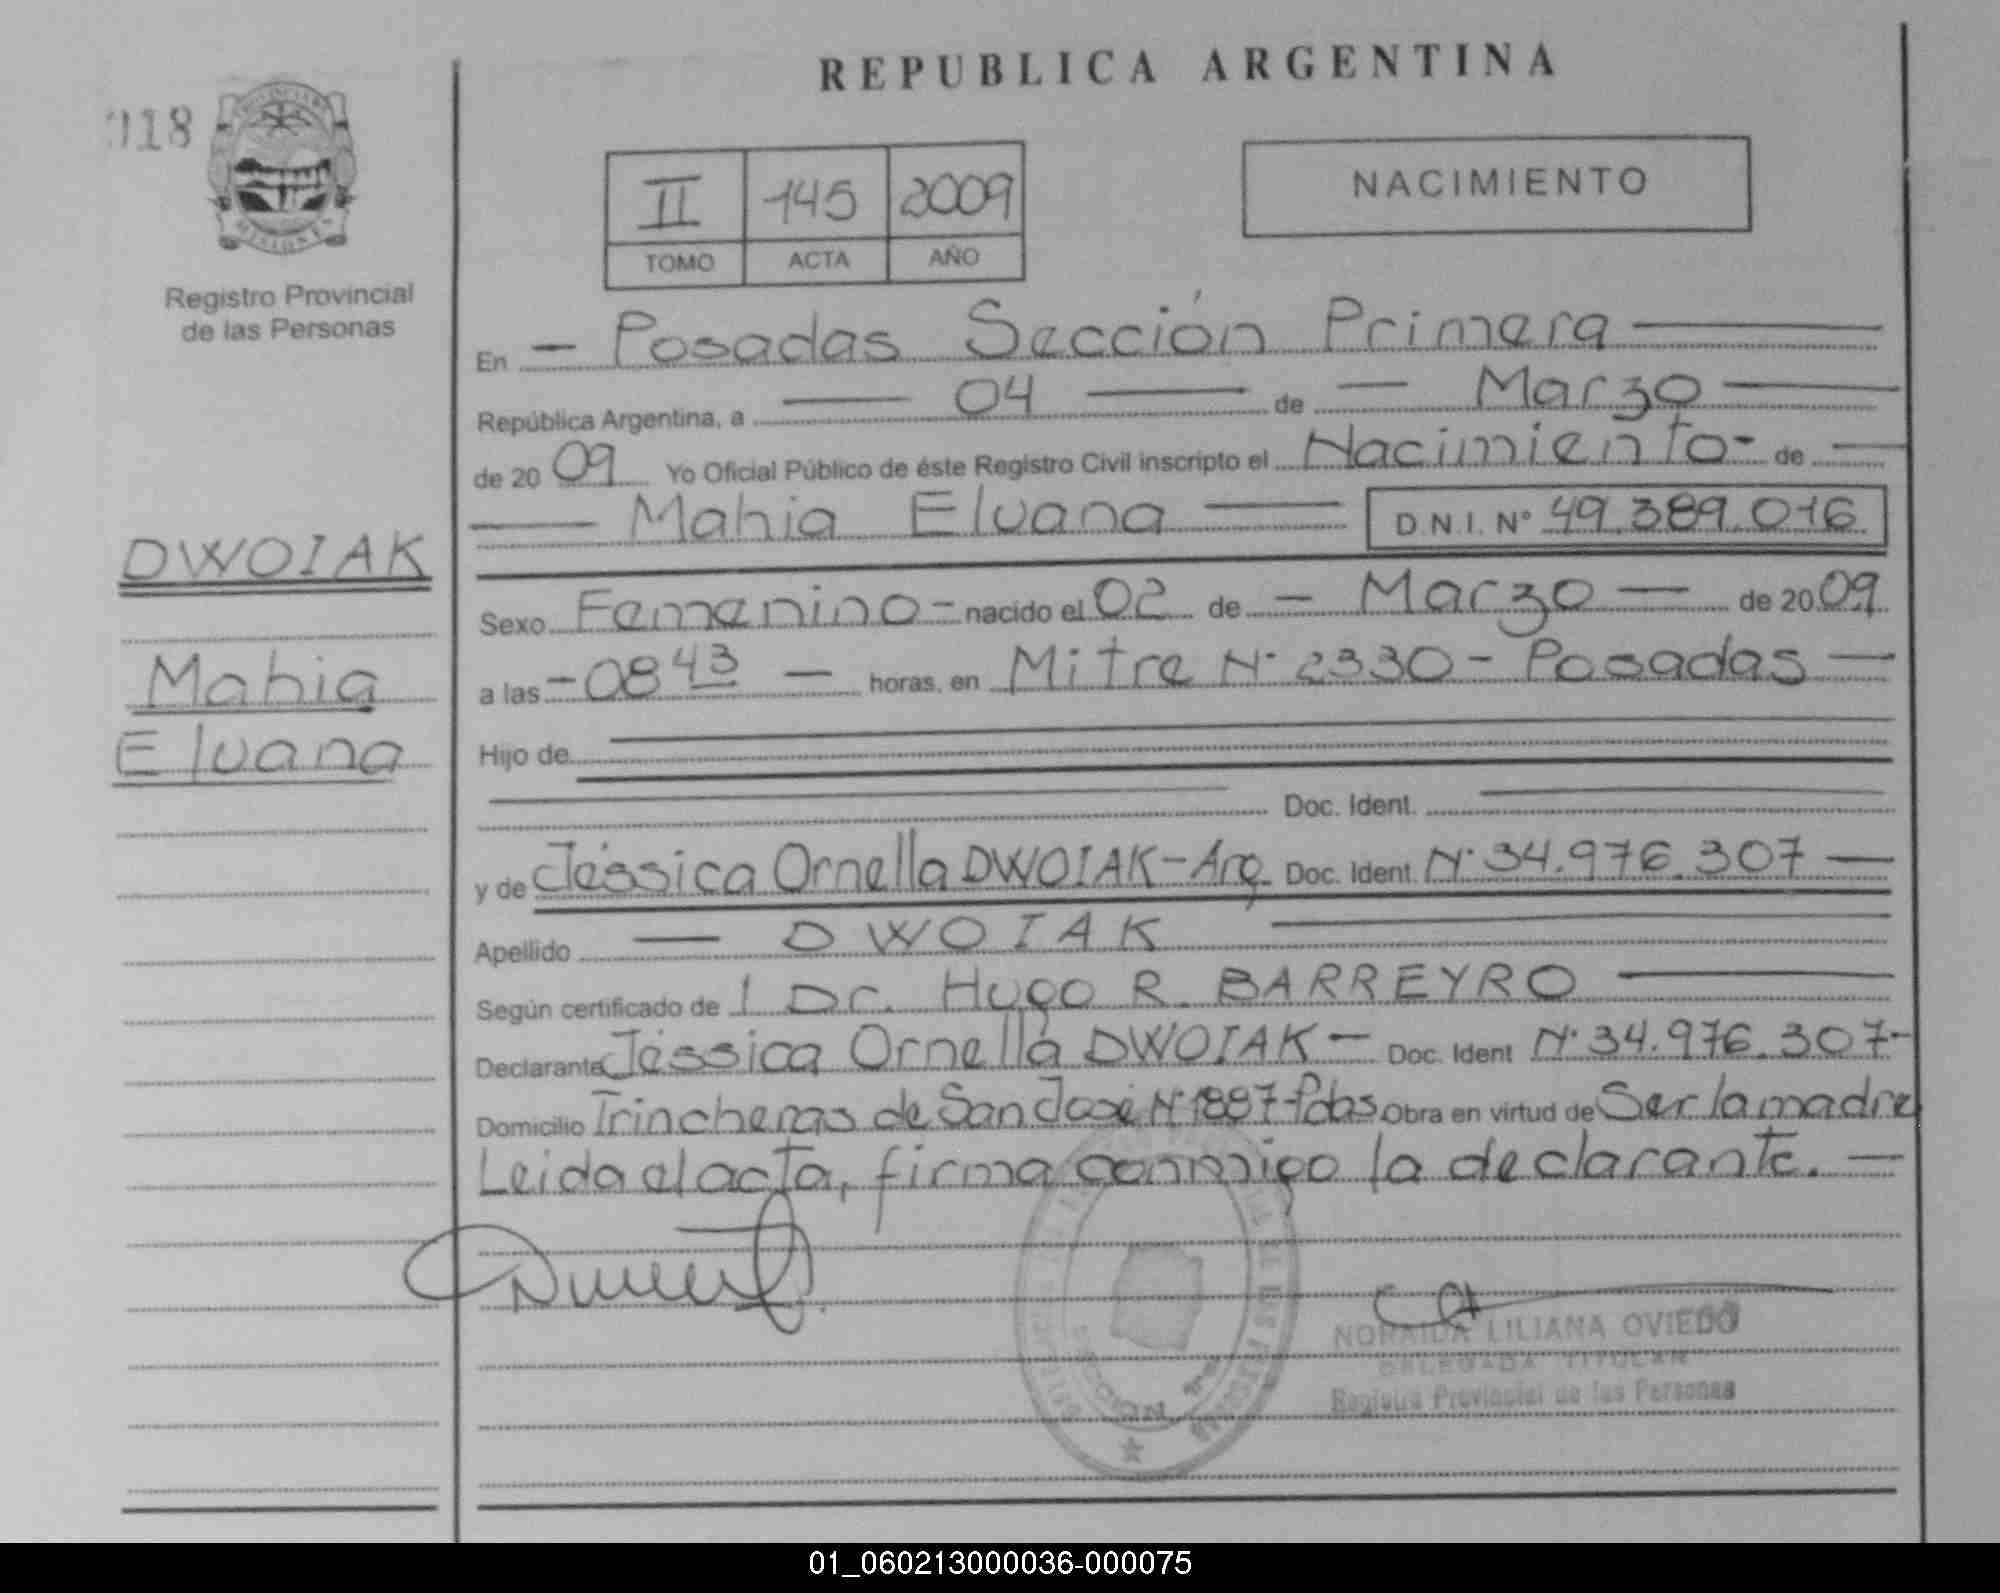 REPUBLICA ARGENTINA
018
PROVINCIA DE
MISIONES
Registro Provincial
de las Personas
II 145 2009
TOMO ACTA AÑO
NACIMIENTO
En - Posadas Sección Primera
República Argentina, a 04 de - Marzo
de 20 09 Yo Oficial Público de éste Registro Civil inscripto el Nacimiento - de
Mahia Eluana D.N.I. Nº 49.389.016
DWOIAK
Mahia
Eluana
Sexo Femenino - nacido el 02 de - Marzo - de 20 09
a las - 08 43 - horas, en Mitre Nº 2330 - Posadas -
Hijo de
Doc. Ident.
y de Jéssica Ornella DWOIAK - Arg. Doc. Ident. Nº 34.976.307 -
Apellido - DWOIAK
Según certificado de Dr. Hugo R. BARREYRO
Declarante Jéssica Ornella DWOIAK - Doc. Ident Nº 34.976.307 -
Domicilio Trincheras de San José Nº 1887 - Pdas Obra en virtud de Ser la madre
Leida el acta, firma conmigo la declarante. -
NORAIDA LILIANA OVIEDO
DELEGADA TITULAR
Registro Provincial de las Personas
SECCION
01_060213000036-000075